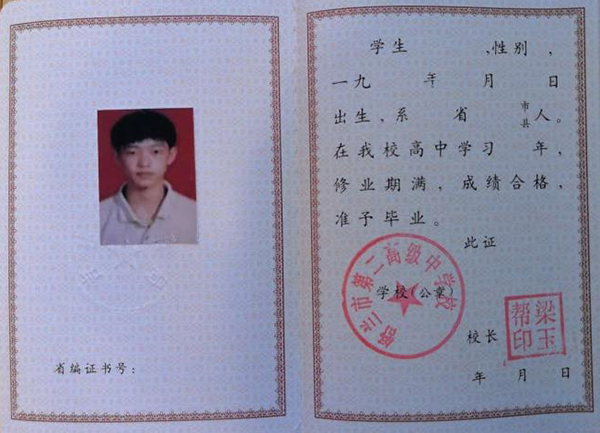 省编证书号：
学生 、性别 ，
一九 年 月 日
出生，系 省 市县 人。
在我校高中学习 年，
修业期满，成绩合格，
准予毕业。
此证
市第二高级中学校
学校（公章）
校长
梁玉
帮印
年 月 日